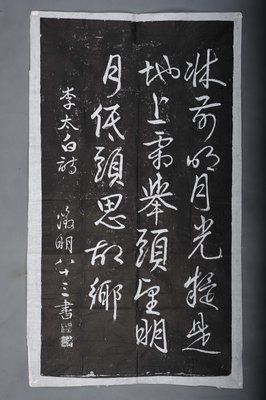 床前明月光疑是
地上霜舉頭望明
月低頭思故鄉
李太白詩
徵明八十三書